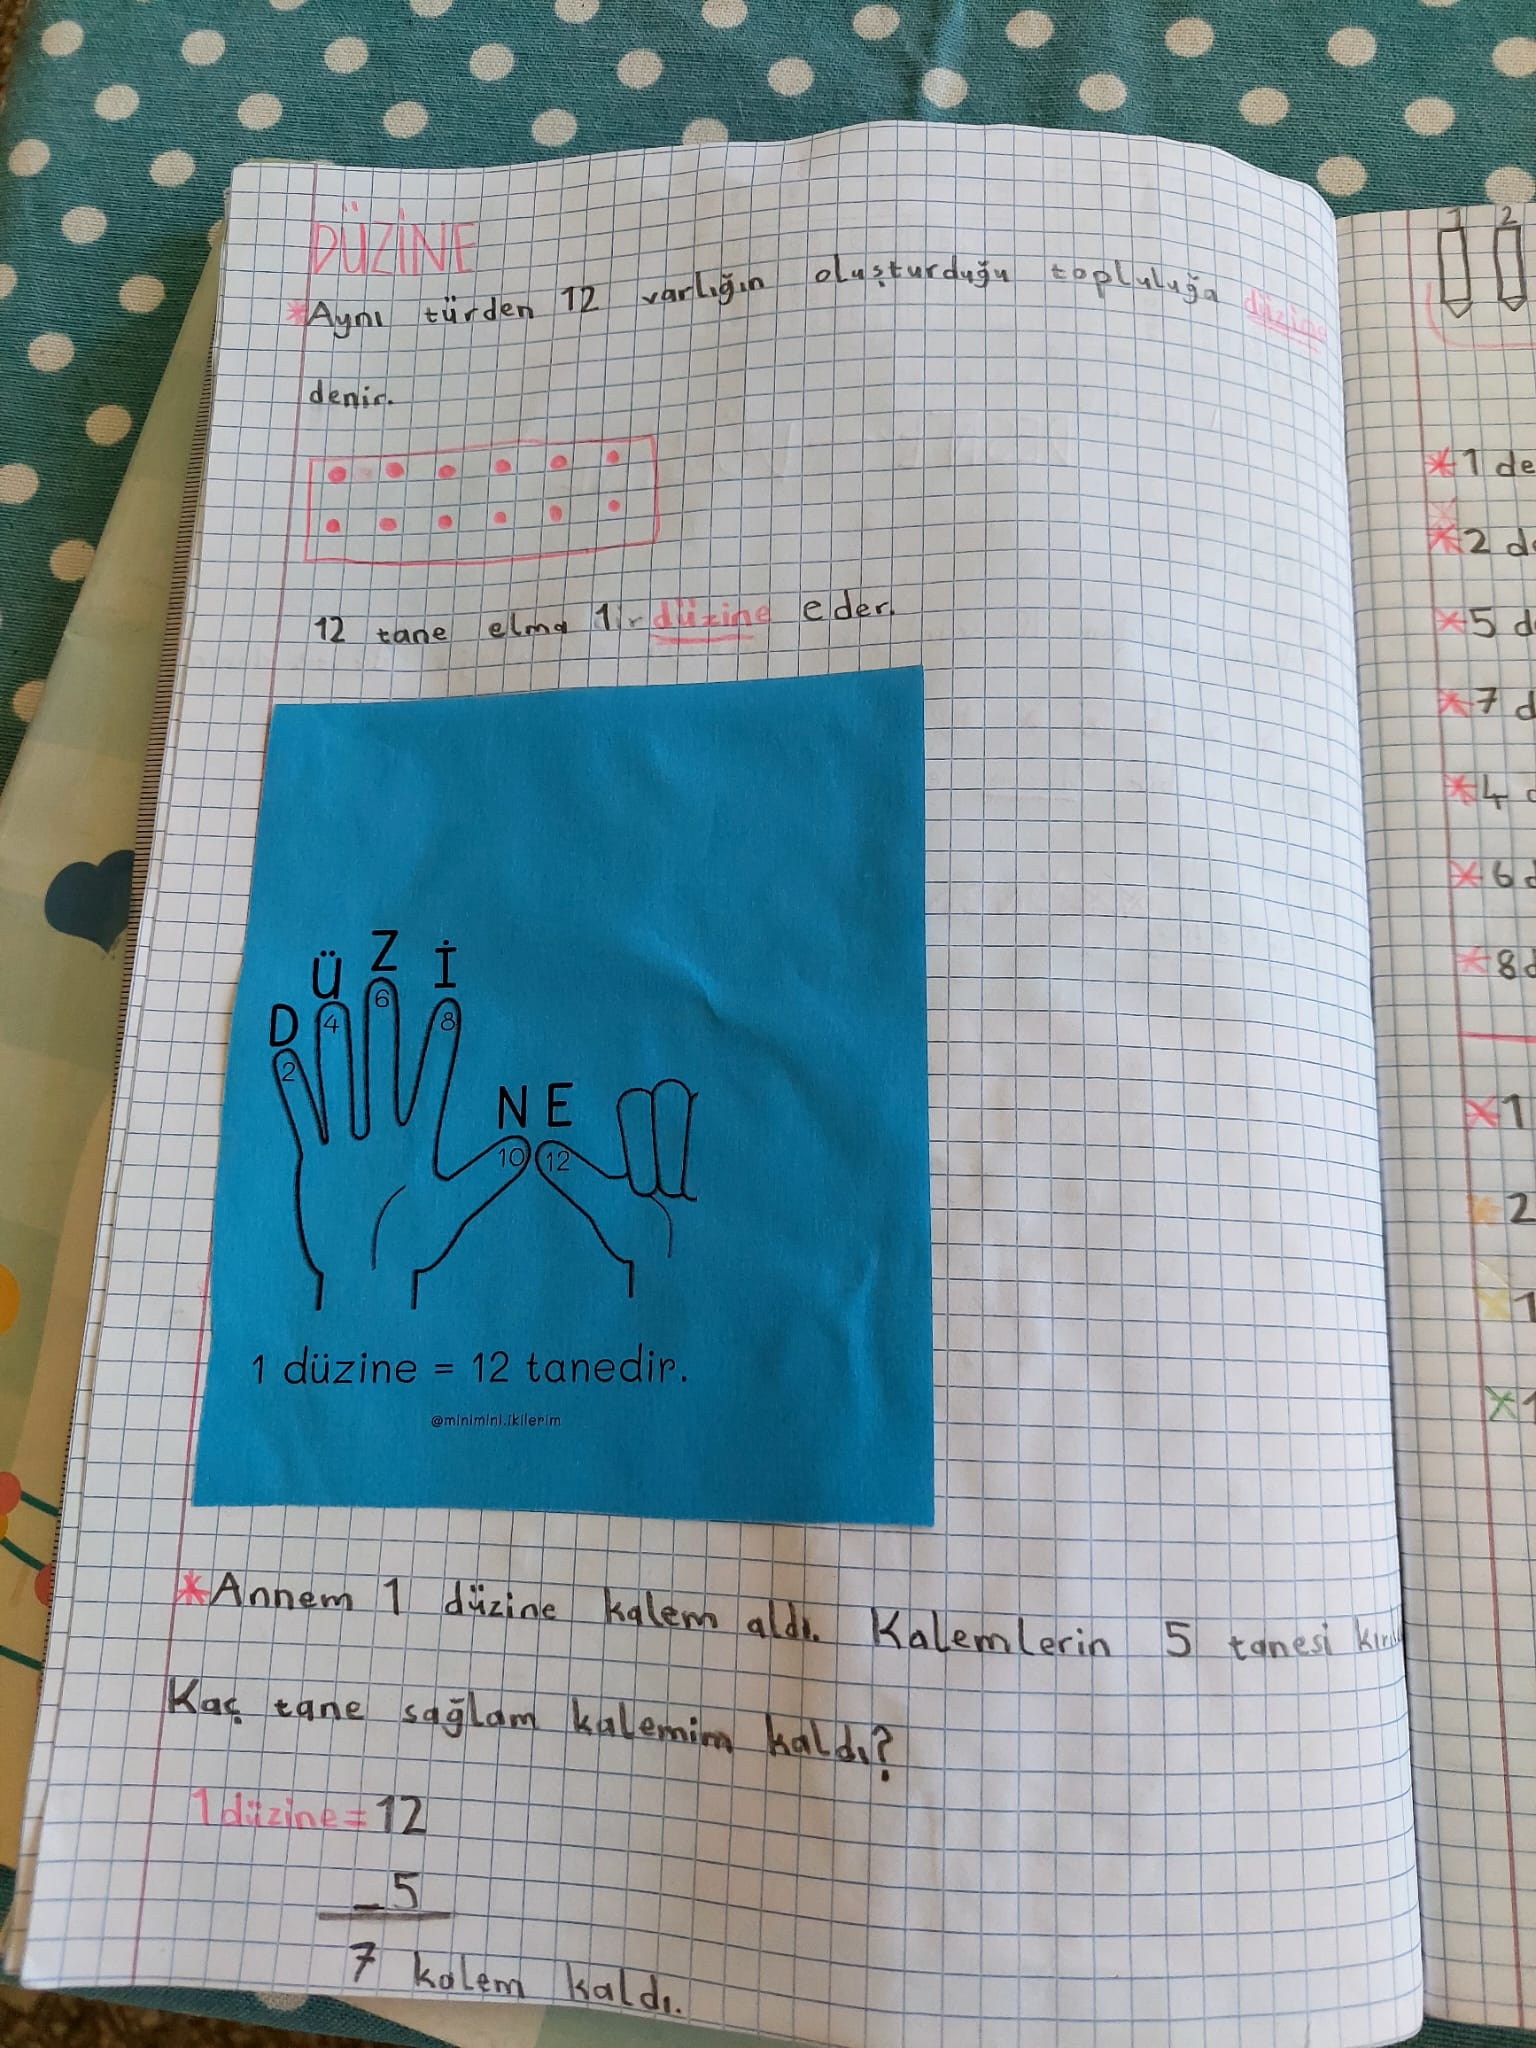 DÜZİNE
*Aynı türden 12 varlığın oluşturduğu topluluğa düzine
denir.
12 tane elma 1 düzine eder.
D Ü Z İ N E
2 4 6 8 10 12
1 düzine = 12 tanedir.
@minimini.ikilerim
*Annem 1 düzine kalem aldı. Kalemlerin 5 tanesi
Kaç tane sağlam kalemim kaldı?
1 düzine = 12
- 5
7 kalem kaldı.
1 2
*1 de
*2 de
*5 d
*7 d
*4 d
*6 d
*8 d
*1
*2
*1
*1